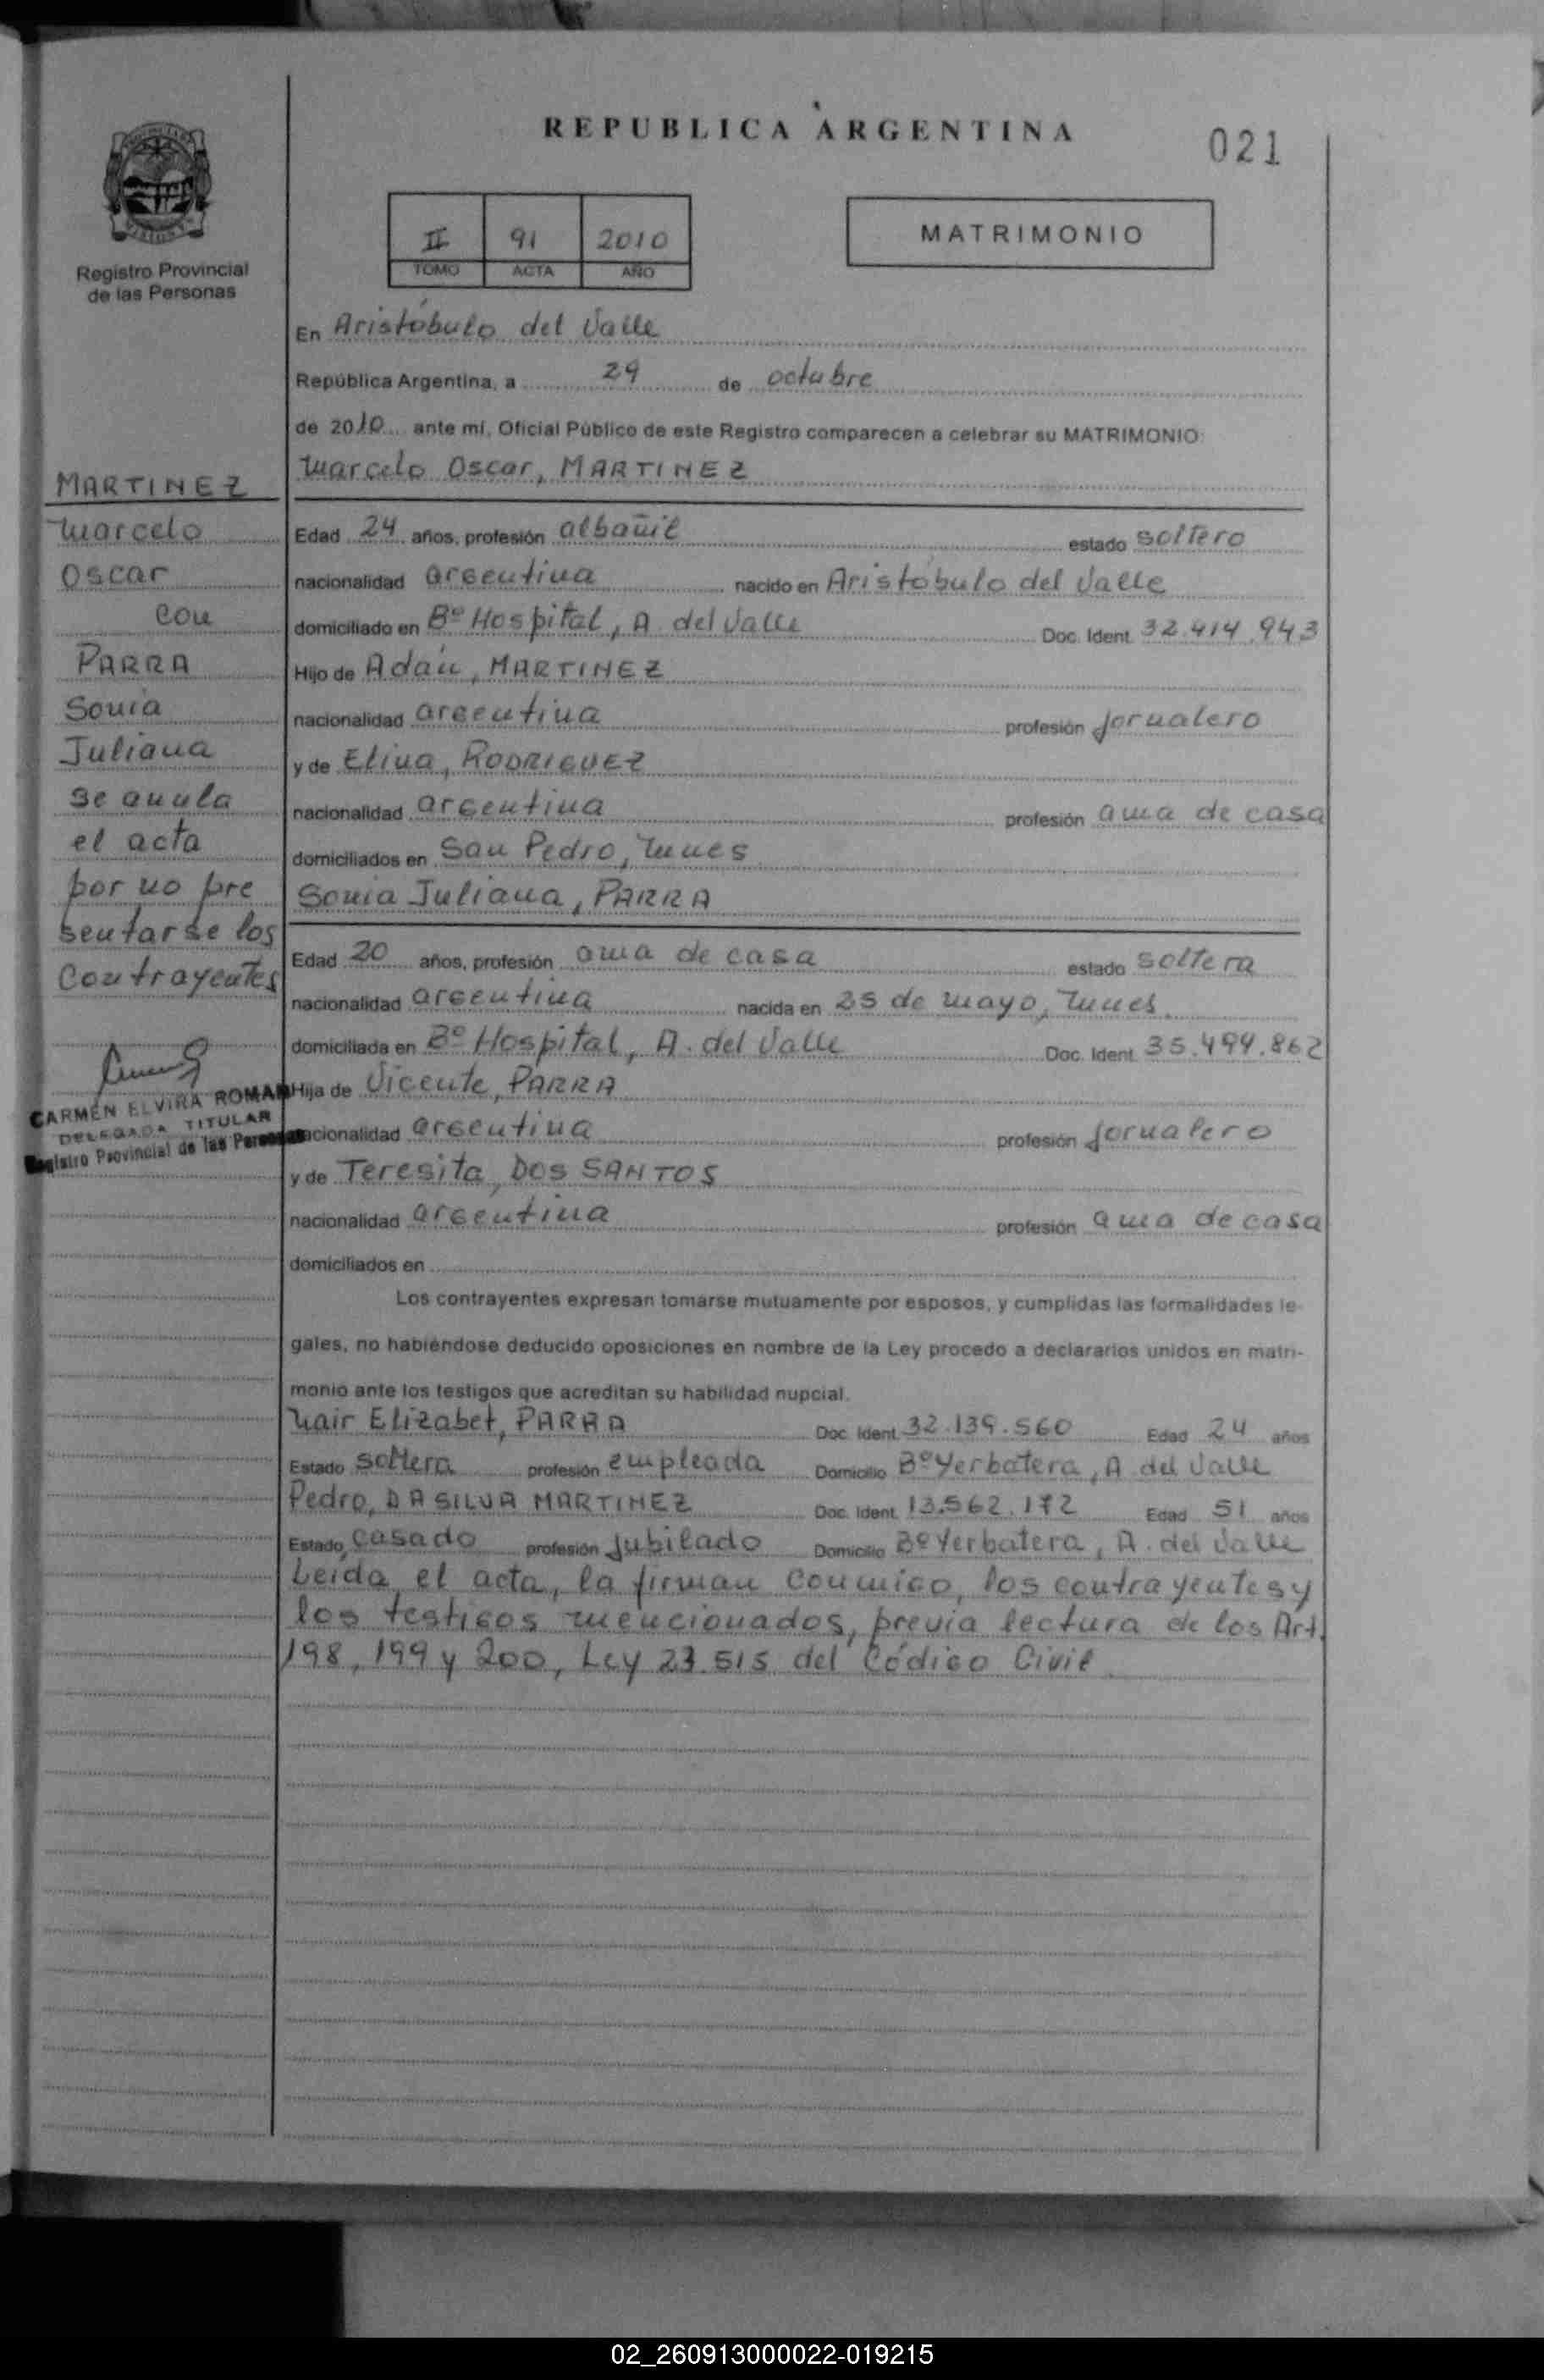 REPUBLICA ARGENTINA
021
II 91 2010
TOMO ACTA AÑO
MATRIMONIO
Registro Provincial
de las Personas
En Aristóbulo del Valle
República Argentina, a 29 de octubre
de 2010 ante mí, Oficial Público de este Registro comparecen a celebrar su MATRIMONIO:
Marcelo Oscar, MARTINEZ
Edad 24 años, profesión albañil estado soltero
nacionalidad argentina nacido en Aristóbulo del Valle
domiciliado en Bº Hospital, A. del Valle Doc. Ident. 32.414.943
Hijo de Adán, MARTINEZ
nacionalidad argentina profesión jornalero
y de Elina, RODRIGUEZ
nacionalidad argentina profesión ama de casa
domiciliados en San Pedro, Mnes
Sonia Juliana, PARRA
Edad 20 años, profesión ama de casa estado soltera
nacionalidad argentina nacida en 25 de mayo, Mnes.
domiciliada en Bº Hospital, A. del Valle Doc. Ident. 35.494.862
Hija de Vicente, PARRA
nacionalidad argentina profesión jornalero
y de Teresita, DOS SANTOS
nacionalidad argentina profesión ama de casa
domiciliados en
Los contrayentes expresan tomarse mutuamente por esposos, y cumplidas las formalidades le-
gales, no habiéndose deducido oposiciones en nombre de la Ley procedo a declararlos unidos en matri-
monio ante los testigos que acreditan su habilidad nupcial.
Nair Elizabet, PARRA Doc. Ident. 32.139.560 Edad 24 años
Estado soltera profesión empleada Domicilio Bº Yerbatera, A. del Valle
Pedro, DA SILVA MARTINEZ Doc. Ident. 13.562.172 Edad 51 años
Estado casado profesión jubilado Domicilio Bº Yerbatera, A. del Valle
Leída el acta, la firman conmigo, los contrayentes y
los testigos mencionados, previa lectura de los Art.
198, 199 y 200, Ley 23.515 del Código Civil
MARTINEZ
Marcelo
Oscar
con
PARRA
Sonia
Juliana
se anula
el acta
por no pre
sentarse los
contrayentes
CARMEN ELVIRA ROMAN
DELEGADA TITULAR
Registro Provincial de las Personas
02_260913000022-019215